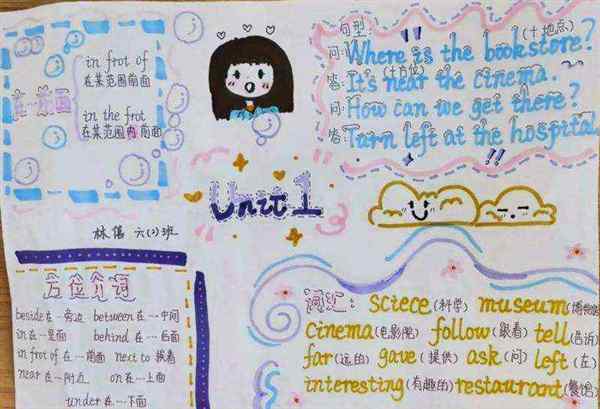 in frot of
在某范围前面
在…前面
in the frot
在某范围内前面
句型:
(+地点)
问: Where is the bookstore?
(+方位)
答: It's near the cinema.
问: How can we get there?
答: Turn left at the hospital.
Unit 1
林偌 六(2)班
方位介词
beside在…旁边 between在…中间
in在…里面 behind在…后面
in frot of在…前面 next to挨着
near在…附近 on在…上面
under在…下面
词汇: sciece(科学) museum(博物馆)
Cinema(电影院) follow(跟着) tell(告诉)
far(远的) gave(提供) ask(问) left(左)
interesting(有趣的) restaurant(餐馆)